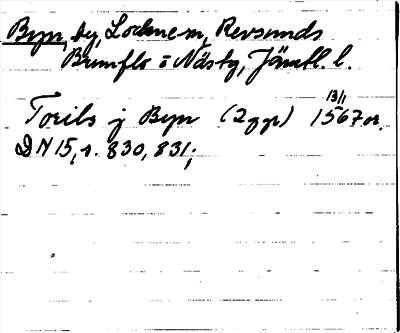 Byn, by, Lockne sn, Revsunds
Brunflo o Näsk tg, Jämtl. l.
13/11
Torils j Byn (2 ggr) 1567 or.
DN 15, s. 830, 831;